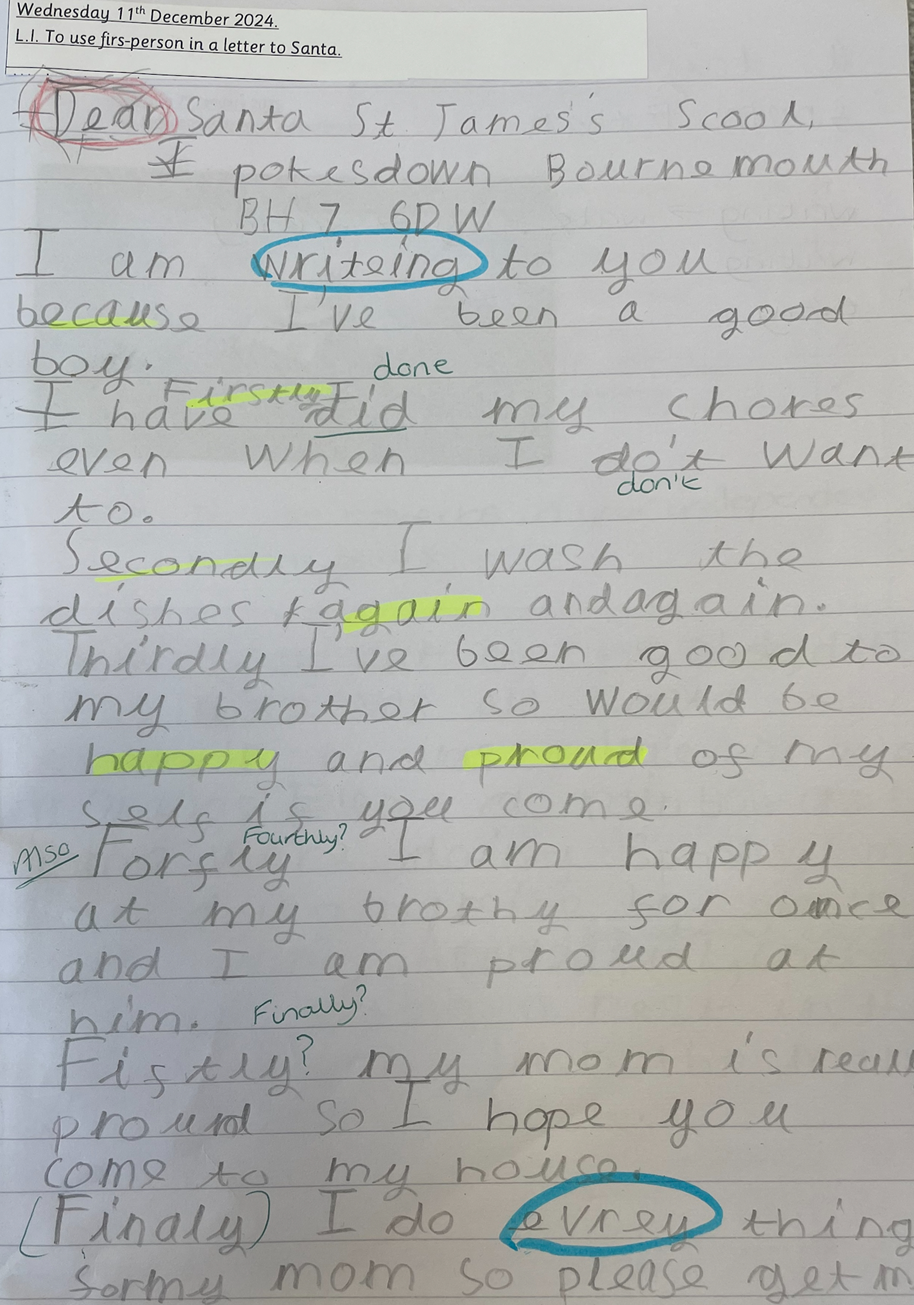 Wednesday 11th December 2024.
L.I. To use firs-person in a letter to Santa.
Dear Santa St James's Scool,
I pokesdown Bournemouth
BH 7 6DW
I am writeing to you
because I've been a good
boy.
done
Firstly I
I have did my chores
even when I do't want
don't
to.
Secondly I wash the
dishes again andagain.
Thirdly I've been good to
my brother so would be
happy and proud of my
self if you come.
Fourthly?
Also Forfly I am happy
at my brothy for once
and I am proud at
him. Finally?
Fiftly? my mom is reall
proud so I hope you
come to my house.
(Finaly) I do evrey thing
formy mom so please get m